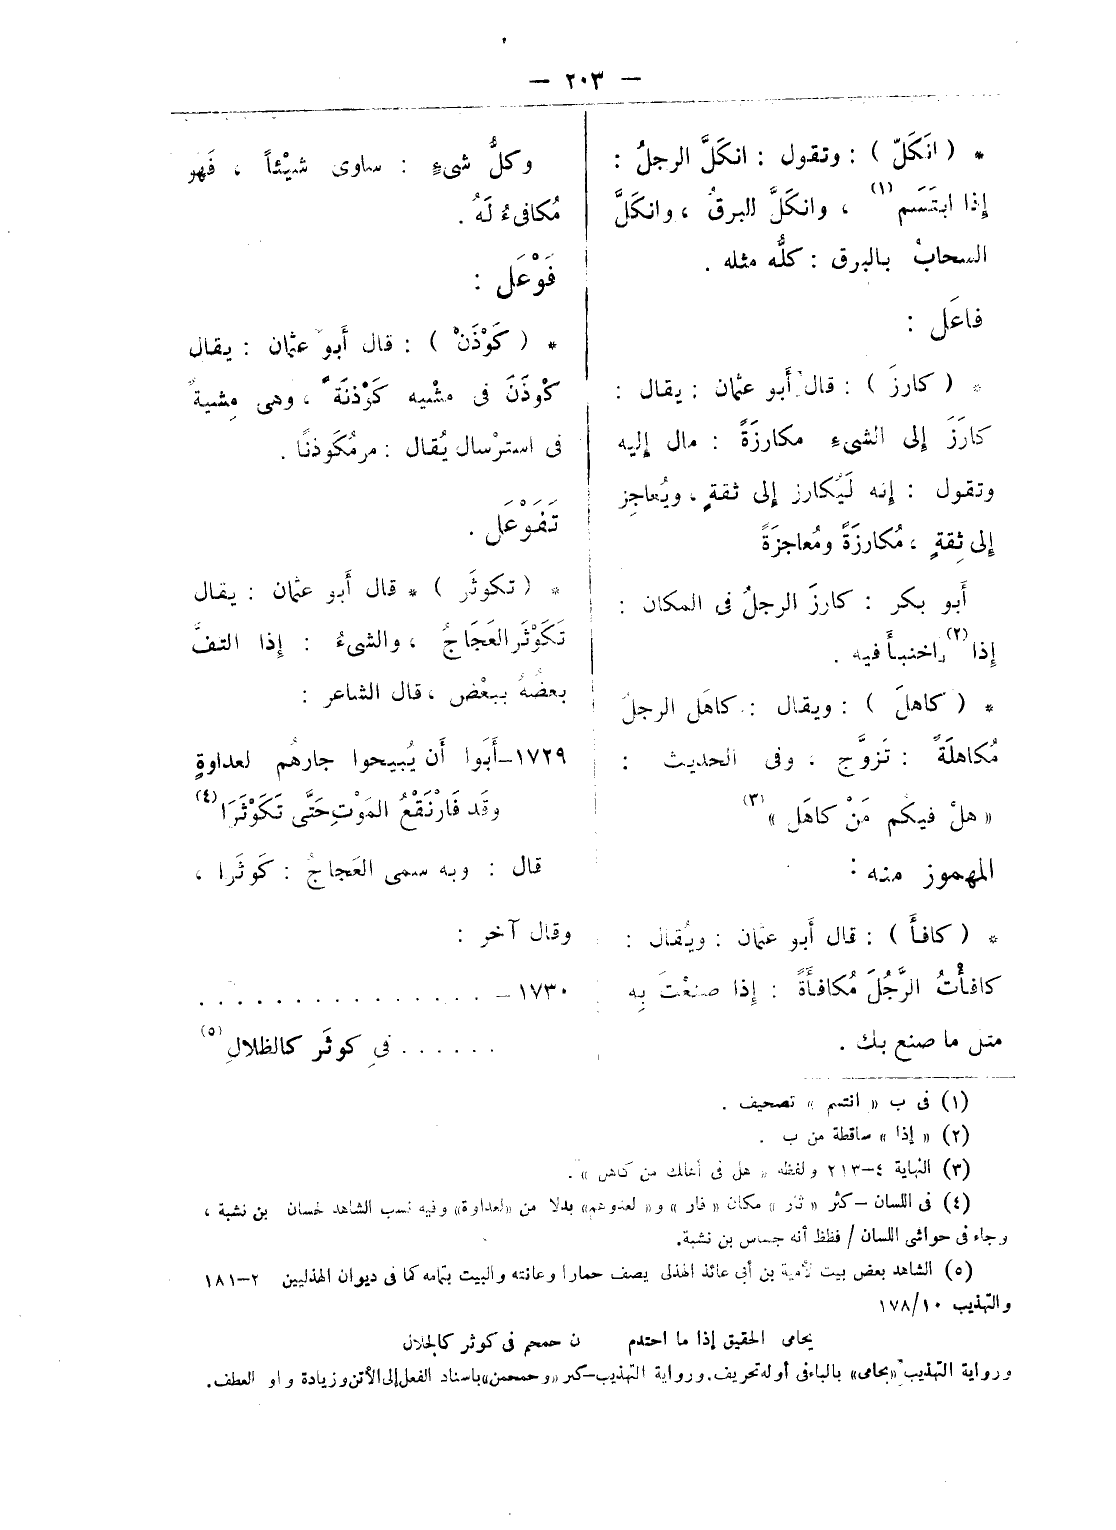 — ٢٠٣ —
* ( انَكَلّ ) : وتقول : انكَلَّ الرجلُ :
إِذا ابتَسَم (١) ، وانكَلَّ البرقُ ، وانكَلَّ
السحابُ بالبرق : كلُّه مثله .
فاعَل :
* ( كارزَ ) : قال أَبو عثمان : يقال :
كارَزَ إِلى الشىءِ مكارزَةً : مال إِليه
وتقول : إِنه لَيُكارز إِلى ثقةٍ ، ويُعاجِز
إِلى ثِقةٍ ، مُكارزَةً ومُعاجزَةً
أَبو بكر : كارزَ الرجلُ فى المكان :
إِذا (٢) اختبأَ فيه .
* ( كاهلَ ) : ويقال : كاهَل الرجلُ
مُكاهلَةً : تَزوَّج ، وفى الحديث :
« هلْ فيكُم مَنْ كاهَل » (٣)
المهموز منه :
* ( كافأَ ) : قال أَبو عثمان : ويُقال :
كافأْتُ الرَّجُلَ مُكافأَةً : إِذا صنعْتَ بِه
مثل ما صنع بك .
وكلُّ شىءٍ : ساوى شيْئاً ، فَهو
مُكافىءُ لَهُ .
فَوْعَل :
* ( كَوْذَنْ ) : قال أَبو عثمان : يقال
كوْذَنَ فى مشْيه كَوْذنَةً ، وهى مِشيةٌ
فى استرْسال يُقال : مرمُكَوذنًا .
تَفَوْعَل .
* ( تكوثَر ) * قال أَبو عثمان : يقال
تَكَوْثَر العَجَاجُ ، والشىءُ : إِذا التفَّ
بعضُهُ ببعْض ، قال الشاعر :
١٧٢٩–أَبَوا أَن يُبيحوا جارهُم لعداوةٍ
وقَد فَارْنَقْعُ المَوْتِ حَتَّى تَكَوْثَرَا (٤)
قال : وبه سمى العَجاجُ : كَوثَرا ،
وقال آخر :
١٧٣٠– . . . . . . . . . . . . . . .
. . . . . . فى كوثَر كالظلالِ (٥)
(١) فى ب « انتسم » تصحيف .
(٢) « إذا » ساقطة من ب .
(٣) النهاية ٤–٢١٣ ولفظه « هل فى أهلك من كاهل » .
(٤) فى اللسان –كثر « ثار » مكان « فار » و« لعدوهم» بدلا من «لعداوة» وفيه نسب الشاهد لحسان بن نشبة ،
وجاء فى حواشى اللسان / فظظ أنه جساس بن نشبة.
(٥) الشاهد بعض بيت لأمية بن أبى عائذ الهذلى يصف حمارا وعانته والبيت بتمامه كما فى ديوان الهذليين ٢–١٨١
والتهذيب ١٧٨/١٠
يحامى الحقيق إذا ما احتدم ن حمحم فى كوثر كالجلال
ورواية التهذيب «بحامى» بالباء فى أوله تحريف. ورواية التهذيب–كثر «وحمحمن» باسناد الفعل إلى الأتن وزيادة واو العطف.